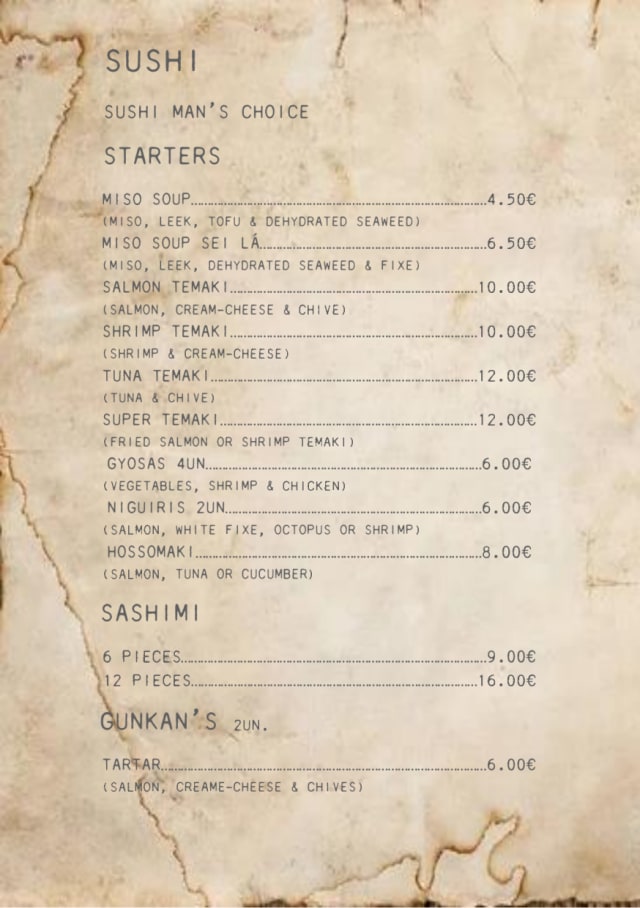 SUSHI
SUSHI MAN'S CHOICE
STARTERS
MISO SOUP........4.50€
(MISO, LEEK, TOFU & DEHYDRATED SEAWEED)
MISO SOUP SEI LÁ........6.50€
(MISO, LEEK, DEHYDRATED SEAWEED & FIXE)
SALMON TEMAKI........10.00€
(SALMON, CREAM-CHEESE & CHIVE)
SHRIMP TEMAKI........10.00€
(SHRIMP & CREAM-CHEESE)
TUNA TEMAKI........12.00€
(TUNA & CHIVE)
SUPER TEMAKI........12.00€
(FRIED SALMON OR SHRIMP TEMAKI)
GYOSAS 4UN........6.00€
(VEGETABLES, SHRIMP & CHICKEN)
NIGUIRIS 2UN........6.00€
(SALMON, WHITE FIXE, OCTOPUS OR SHRIMP)
HOSSOMAKI........8.00€
(SALMON, TUNA OR CUCUMBER)
SASHIMI
6 PIECES........9.00€
12 PIECES........16.00€
GUNKAN'S 2UN.
TARTAR........6.00€
(SALMON, CREAME-CHEESE & CHIVES)